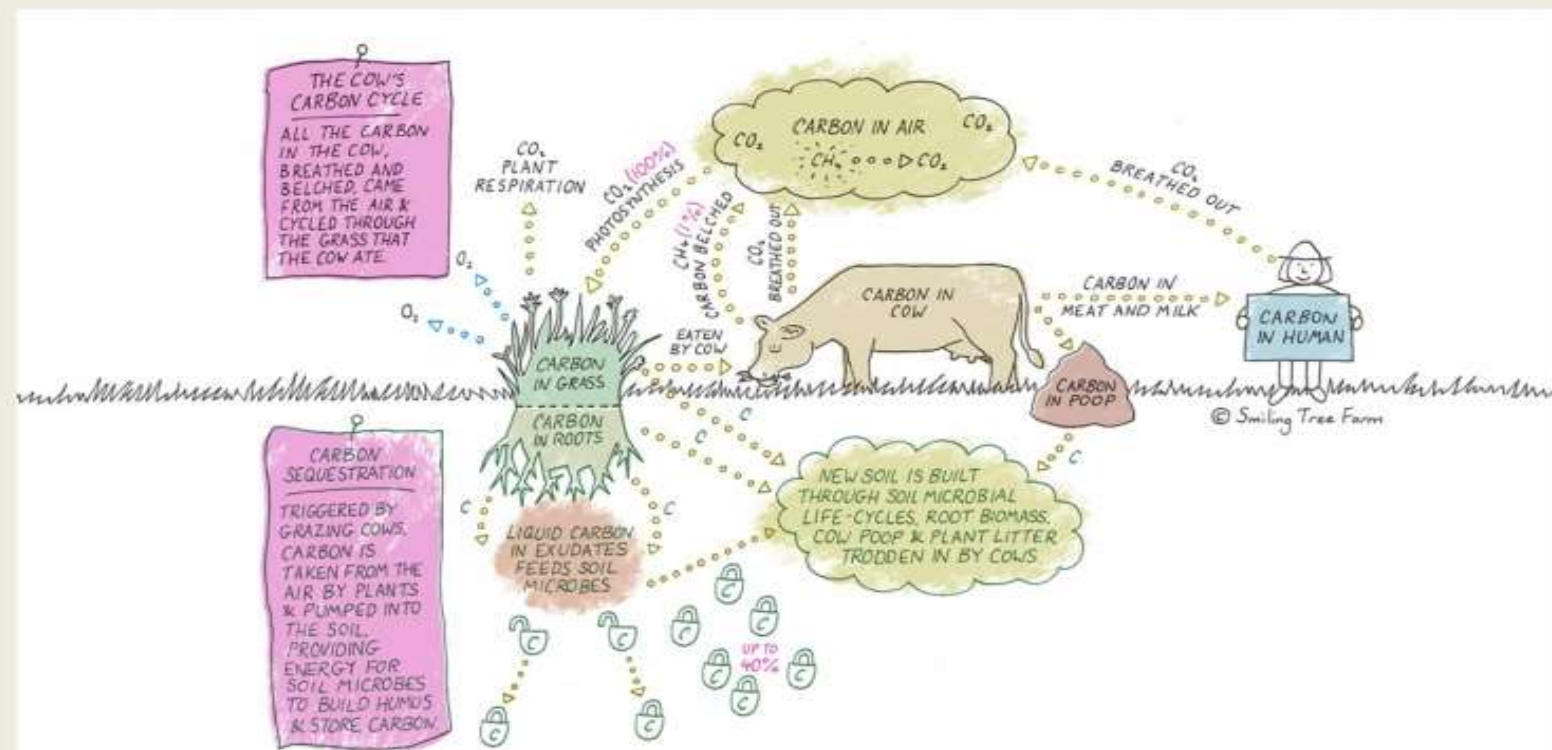 THE COW'S
CARBON CYCLE
ALL THE CARBON
IN THE COW,
BREATHED AND
BELCHED, CAME
FROM THE AIR &
CYCLED THROUGH
THE GRASS THAT
THE COW ATE
CO₂
PLANT
RESPIRATION
O₂
O₂
CO₂ (100%)
PHOTOSYNTHESIS
CARBON IN AIR
CO₂
CO₂
CH₄
CO₂
CH₄ (1%)
CARBON BELCHED
CO₂
BREATHED OUT
CO₂
BREATHED OUT
CARBON IN
COW
EATEN
BY COW
CARBON IN
MEAT AND MILK
CARBON
IN HUMAN
CARBON
IN GRASS
CARBON
IN ROOTS
CARBON
IN POOP
© Smiling Tree Farm
C
C
C
C
C
CARBON
SEQUESTRATION
TRIGGERED BY
GRAZING COWS,
CARBON IS
TAKEN FROM THE
AIR BY PLANTS
& PUMPED INTO
THE SOIL,
PROVIDING
ENERGY FOR
SOIL MICROBES
TO BUILD HUMUS
& STORE CARBON.
LIQUID CARBON
IN EXUDATES
FEEDS SOIL
MICROBES
NEW SOIL IS BUILT
THROUGH SOIL MICROBIAL
LIFE-CYCLES, ROOT BIOMASS,
COW POOP & PLANT LITTER
TRODDEN IN BY COWS
C
C
C
C
C
C
C
UP TO
40%
C
C
C
C